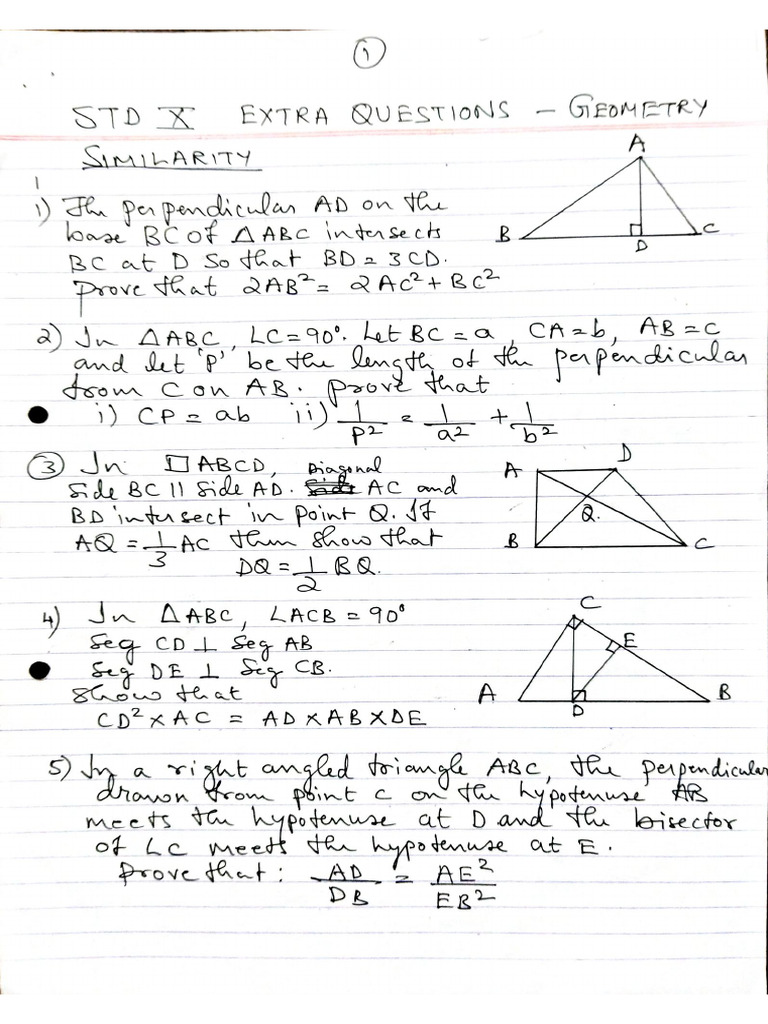 1
STD X EXTRA QUESTIONS – GEOMETRY
SIMILARITY
1
1) The perpendicular AD on the
base BC of △ABC intersects
BC at D so that BD = 3CD.
Prove that 2AB² = 2AC² + BC²
A
B
D
C
2) In △ABC, ∠C = 90°. Let BC = a, CA = b, AB = c
and let 'p' be the length of the perpendicular
from C on AB. Prove that
i) CP = ab ii) 1/P² = 1/a² + 1/b²
3) In □ABCD, Diagonal
side BC || side AD. AC and
BD intersect in point Q. If
AQ = 1/3 AC then show that
DQ = 1/2 BQ.
A
D
Q.
B
C
4) In △ABC, ∠ACB = 90°
seg CD ⊥ seg AB
seg DE ⊥ seg CB.
show that
CD² × AC = AD × AB × DE
C
E
A
D
B
5) In a right angled triangle ABC, the perpendicular
drawn from point C on the hypotenuse AB
meets the hypotenuse at D and the bisector
of ∠C meets the hypotenuse at E.
Prove that: AD/DB = AE²/EB²